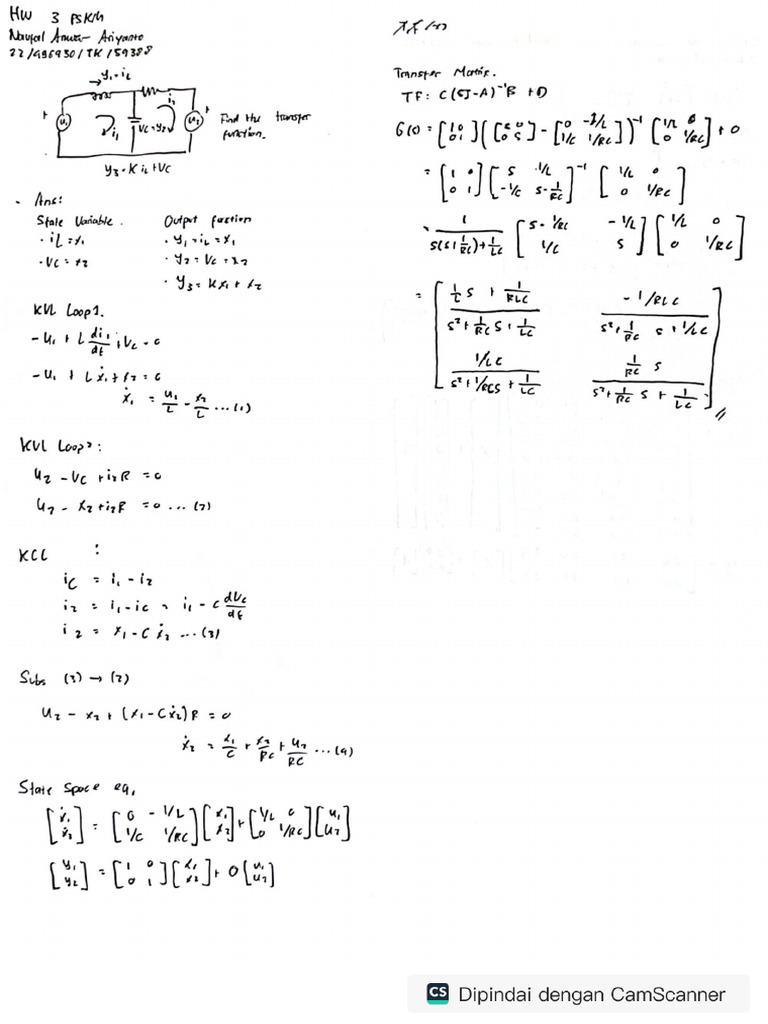 HW 3 PSKM
Naufal Anwar Ariyanto
22/496930/TK/54388
y₁ = iL
i₂
u₁
i₁
Vc = y₂
u₂
Find the transfer
function.
y₃ = K iL + Vc
- Ans:
State Variable.
· iL = x₁
· Vc = x₂
Output function
· y₁ = iL = x₁
· y₂ = Vc = x₂
· y₃ = Kx₁ + x₂
KVL Loop 1.
-u₁ + L di₁/dt + Vc = 0
-u₁ + Lẋ₁ + x₂ = 0
ẋ₁ = u₁/L - x₂/L ... (1)
KVL Loop 2:
u₂ - Vc + i₂R = 0
u₂ - x₂ + i₂R = 0 ... (2)
KCL :
ic = i₁ - i₂
i₂ = i₁ - ic = i₁ - C dVc/dt
i₂ = x₁ - Cẋ₂ ... (3)
Subs (3) → (2)
u₂ - x₂ + (x₁ - Cẋ₂)R = 0
ẋ₂ = x₁/C + x₂/RC + u₂/RC ... (4)
State Space eq,
[ẋ₁; ẋ₂] = [0 -1/L; 1/C 1/RC][x₁; x₂] + [1/L 0; 0 1/RC][u₁; u₂]
[y₁; y₂] = [1 0; 0 1][x₁; x₂] + 0[u₁; u₂]
Transfer Matrix.
TF: C(SI-A)⁻¹B + D
G(s) = [1 0; 0 1]([s 0; 0 s] - [0 -1/L; 1/C 1/RC])⁻¹ [1/L 0; 0 1/RC] + 0
= [1 0; 0 1][s 1/L; -1/C s-1/RC]⁻¹ [1/L 0; 0 1/RC]
= 1/(s(s+1/RC)+1/LC) [s-1/RC -1/L; 1/C s][1/L 0; 0 1/RC]
= [(1/L s + 1/RLC)/(s²+1/RC s+1/LC) (-1/RLC)/(s²+1/RC s+1/LC); (1/LC)/(s²+1/RCs+1/LC) (1/RC s)/(s²+1/RC s+1/LC)]
CS Dipindai dengan CamScanner